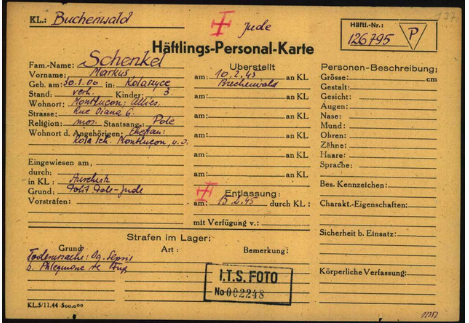 KL.: Buchenwald
Jude
Häftl.-Nr.:
126795
P
Häftlings-Personal-Karte
Fam.-Name: Schenkel
Vorname: Markus
Geb. am: 30.1.00 in Kolaczyce
Stand: verh. Kinder: 3
Wohnort: Montlucon, Allier,
Strasse: Rue Diana 6.
Religion: mos. Staatsang.: Pole
Wohnort d. Angehörigen: Ehefrau:
Montlucon, w.o.
Eingewiesen am:
durch:
in KL: Auschwitz
Grund: Polit Pole-Jude
Vorstrafen:
Überstellt
am: 10.2.45 an KL
Buchenwald
am: an KL
am: an KL
am: an KL
am: an KL
am: an KL
Entlassung:
am: durch KL:
mit Verfügung v.:
Personen-Beschreibung:
Grösse: cm
Gestalt:
Gesicht:
Augen:
Nase:
Mund:
Ohren:
Zähne:
Haare:
Sprache:
Bes. Kennzeichen:
Charakt.-Eigenschaften:
Sicherheit b. Einsatz:
Körperliche Verfassung:
Strafen im Lager:
Grund: Art: Bemerkung:
Todesursache: Ag. Sepsis
b. Phlegmone
I.T.S. FOTO
No 002248
KL/5/11.44-500.000